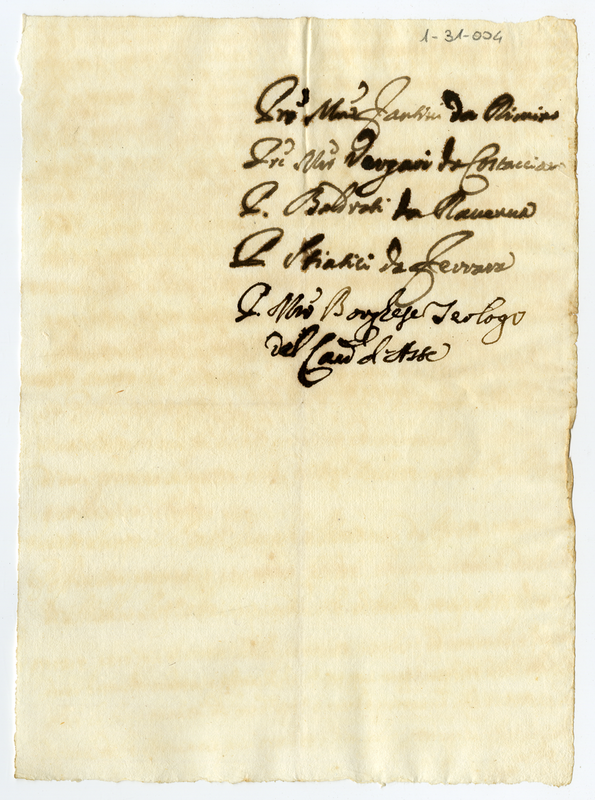 1-31-004
Pre Mro Fantini da Rimino
Pre Mro Vergari da Costacciaro
P. Baldrati da Ravenna
P. Stiatici da Ferrara
P. Mro Borghese Teologo
del Card d'Asse